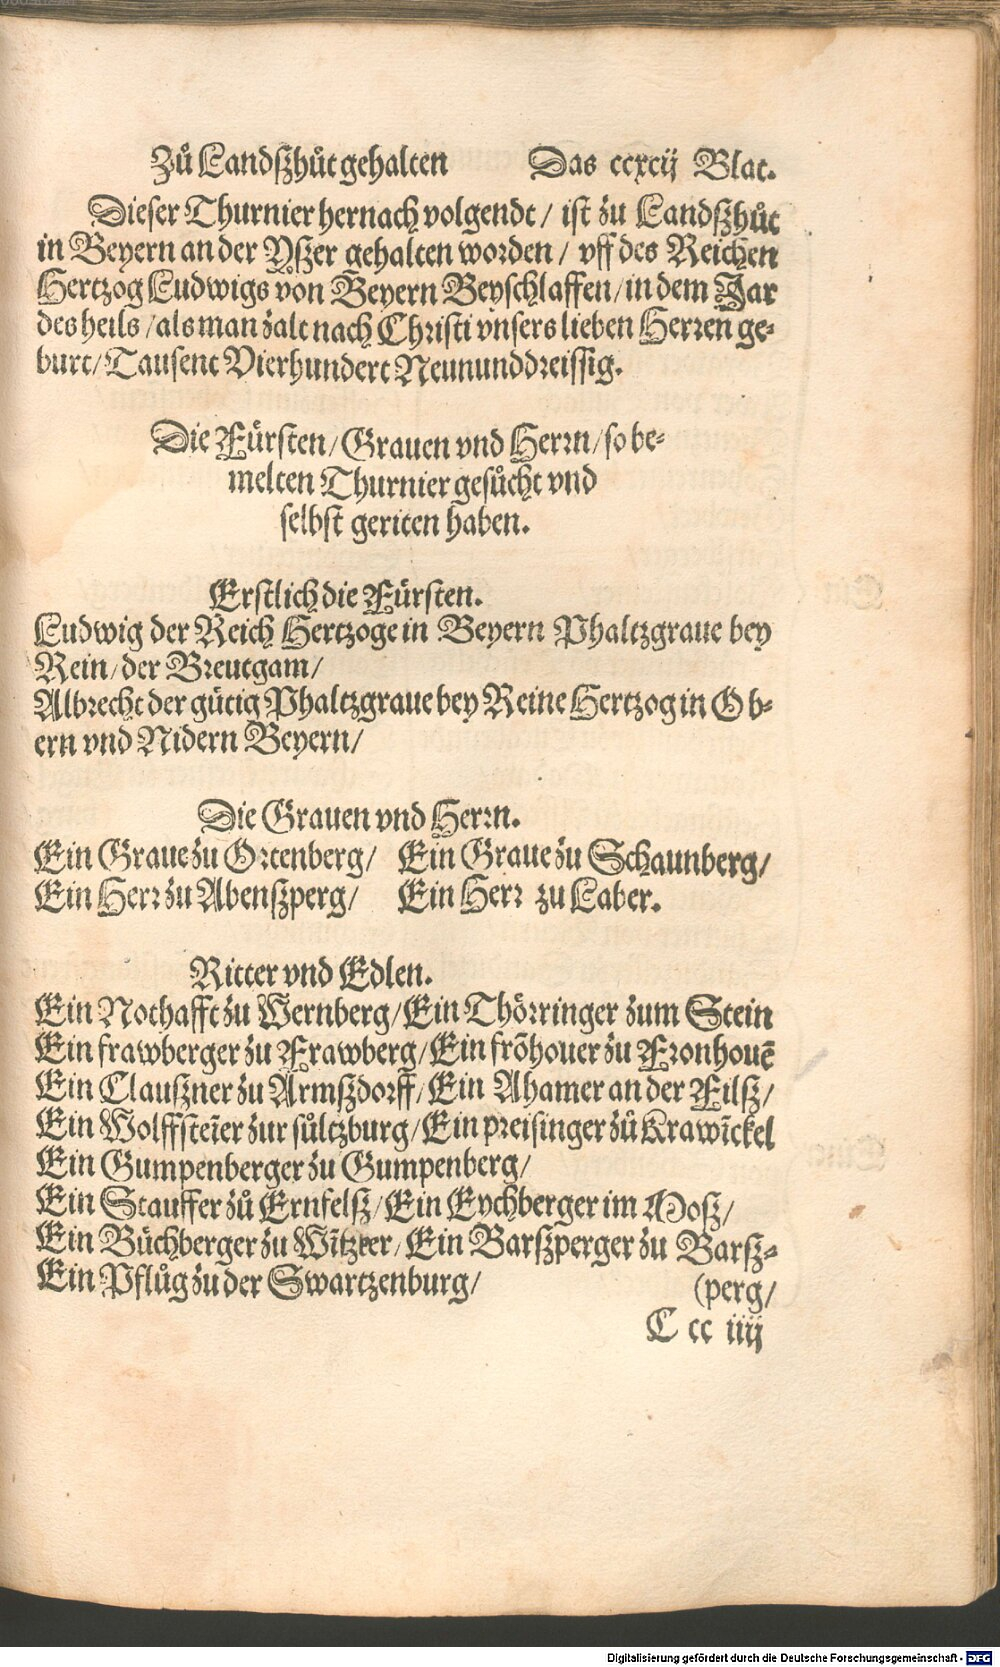 Zů Landßhůt gehalten Das ccxcij Blat.
Dieser Thurnier hernach volgendt / ist zu Landßhůt
in Beyern an der Yßer gehalten worden / vff des Reichen
Hertzog Ludwigs von Beyern Beyschlaffen / in dem Jar
des heils / als man zalt nach Christi vnsers lieben Herren ge-
burt / Tausent Vierhundert Neununddreissig.
Die Fürsten / Grauen vnd Herrn / so be-
melten Thurnier gesůcht vnd
selbst geriten haben.
Erstlich die Fürsten.
Ludwig der Reich Hertzoge in Beyern Phaltzgraue bey
Rein / der Breutgam /
Albrecht der gütig Phaltzgraue bey Reine Hertzog in Ob-
ern vnd Nidern Beyern /
Die Grauen vnd Herrn.
Ein Graue zu Ortenberg / Ein Graue zu Schaunberg /
Ein Herr zu Abenßperg / Ein Herr zu Laber.
Ritter vnd Edlen.
Ein Nothafft zu Wernberg / Ein Thörringer zum Stein
Ein frawberger zu Frawberg / Ein frõhouer zu Fronhouẽ
Ein Claußner zu Armßdorff / Ein Ahamer an der Filß /
Ein Wolffsteĩer zur sůltzburg / Ein preisinger zů Krawĩckel
Ein Gumpenberger zu Gumpenberg /
Ein Stauffer zů Ernfelß / Ein Eychberger im Moß /
Ein Büchberger zu Wĩtzer / Ein Barßperger zu Barß-
Ein Pflůg zu der Swartzenburg / (perg /
C cc iiij
Digitalisierung gefördert durch die Deutsche Forschungsgemeinschaft - DFG